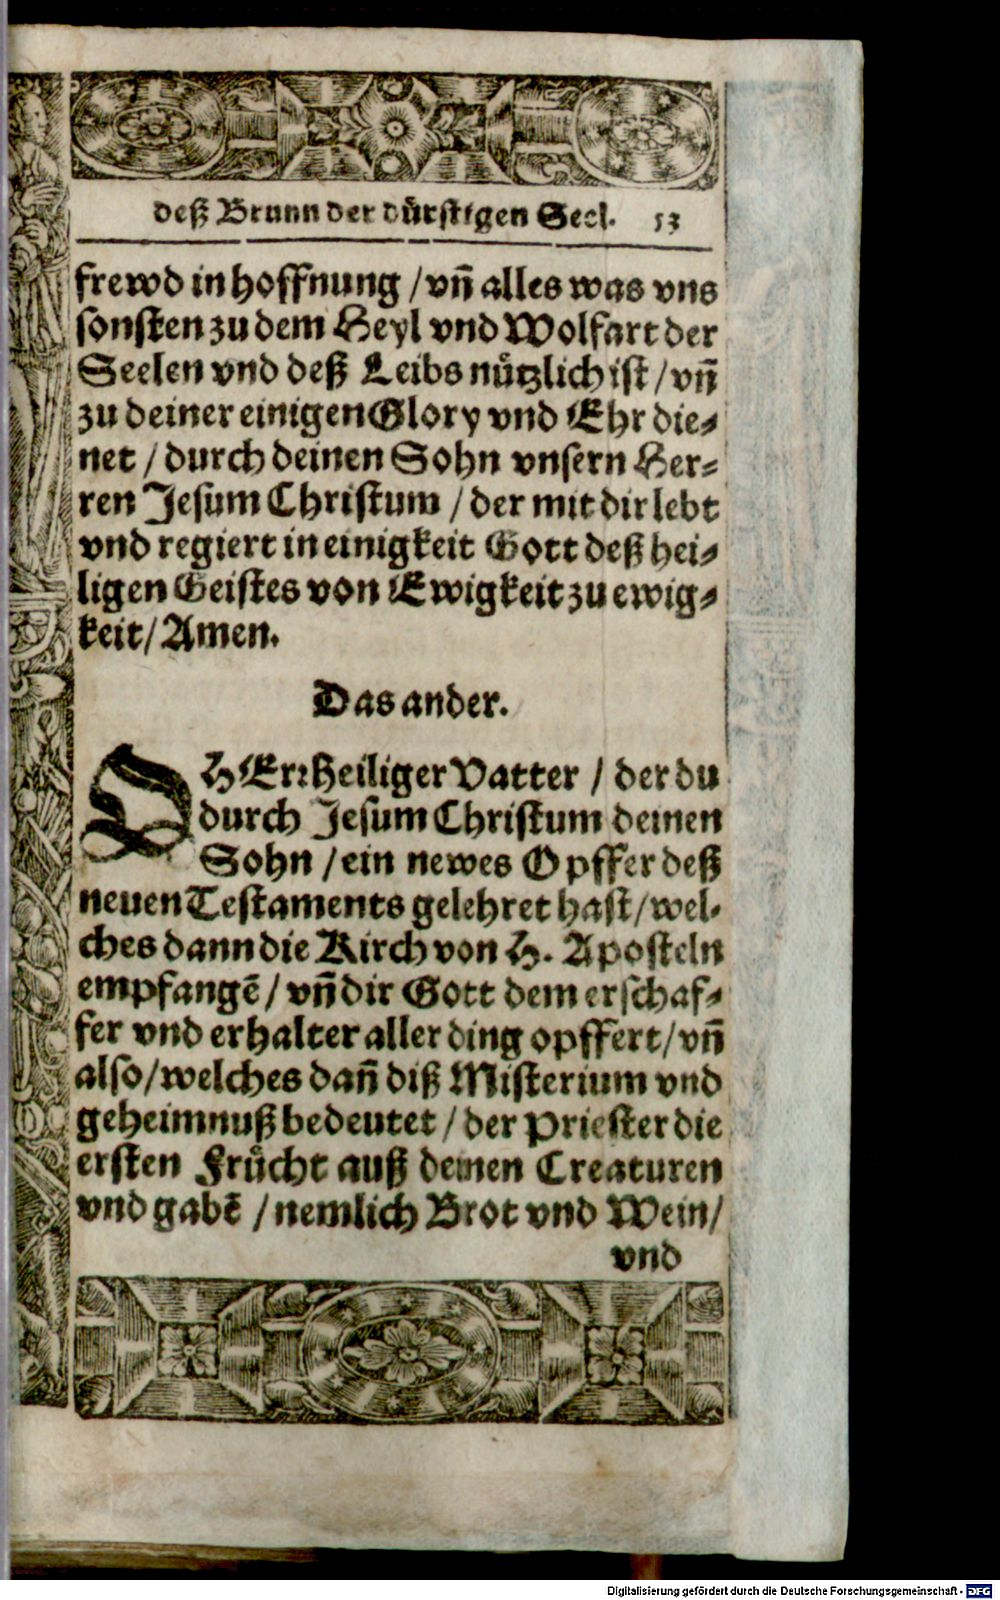 deß Brunn der dürstigen Seel. 53
frewd in hoffnung / vñ alles was vns
sonsten zu dem Heyl vnd Wolfart der
Seelen vnd deß Leibs nützlich ist / vñ
zu deiner einigen Glory vnd Ehr die-
net / durch deinen Sohn vnsern Her-
ren Jesum Christum / der mit dir lebt
vnd regiert in einigkeit Gott deß hei-
ligen Geistes von Ewigkeit zu ewig-
keit / Amen.
Das ander.
O HErr Heiliger Vatter / der du
durch Jesum Christum deinen
Sohn / ein newes Opffer deß
neuen Testaments gelehret hast / wel-
ches dann die Kirch von H. Aposteln
empfangẽ / vñ dir Gott dem erschaf-
fer vnd erhalter aller ding opffert / vñ
also / welches dañ diß Misterium vnd
geheimnuß bedeutet / der Priester die
ersten Frücht auß deinen Creaturen
vnd gabẽ / nemlich Brot vnd Wein /
vnd
Digitalisierung gefördert durch die Deutsche Forschungsgemeinschaft - DFG